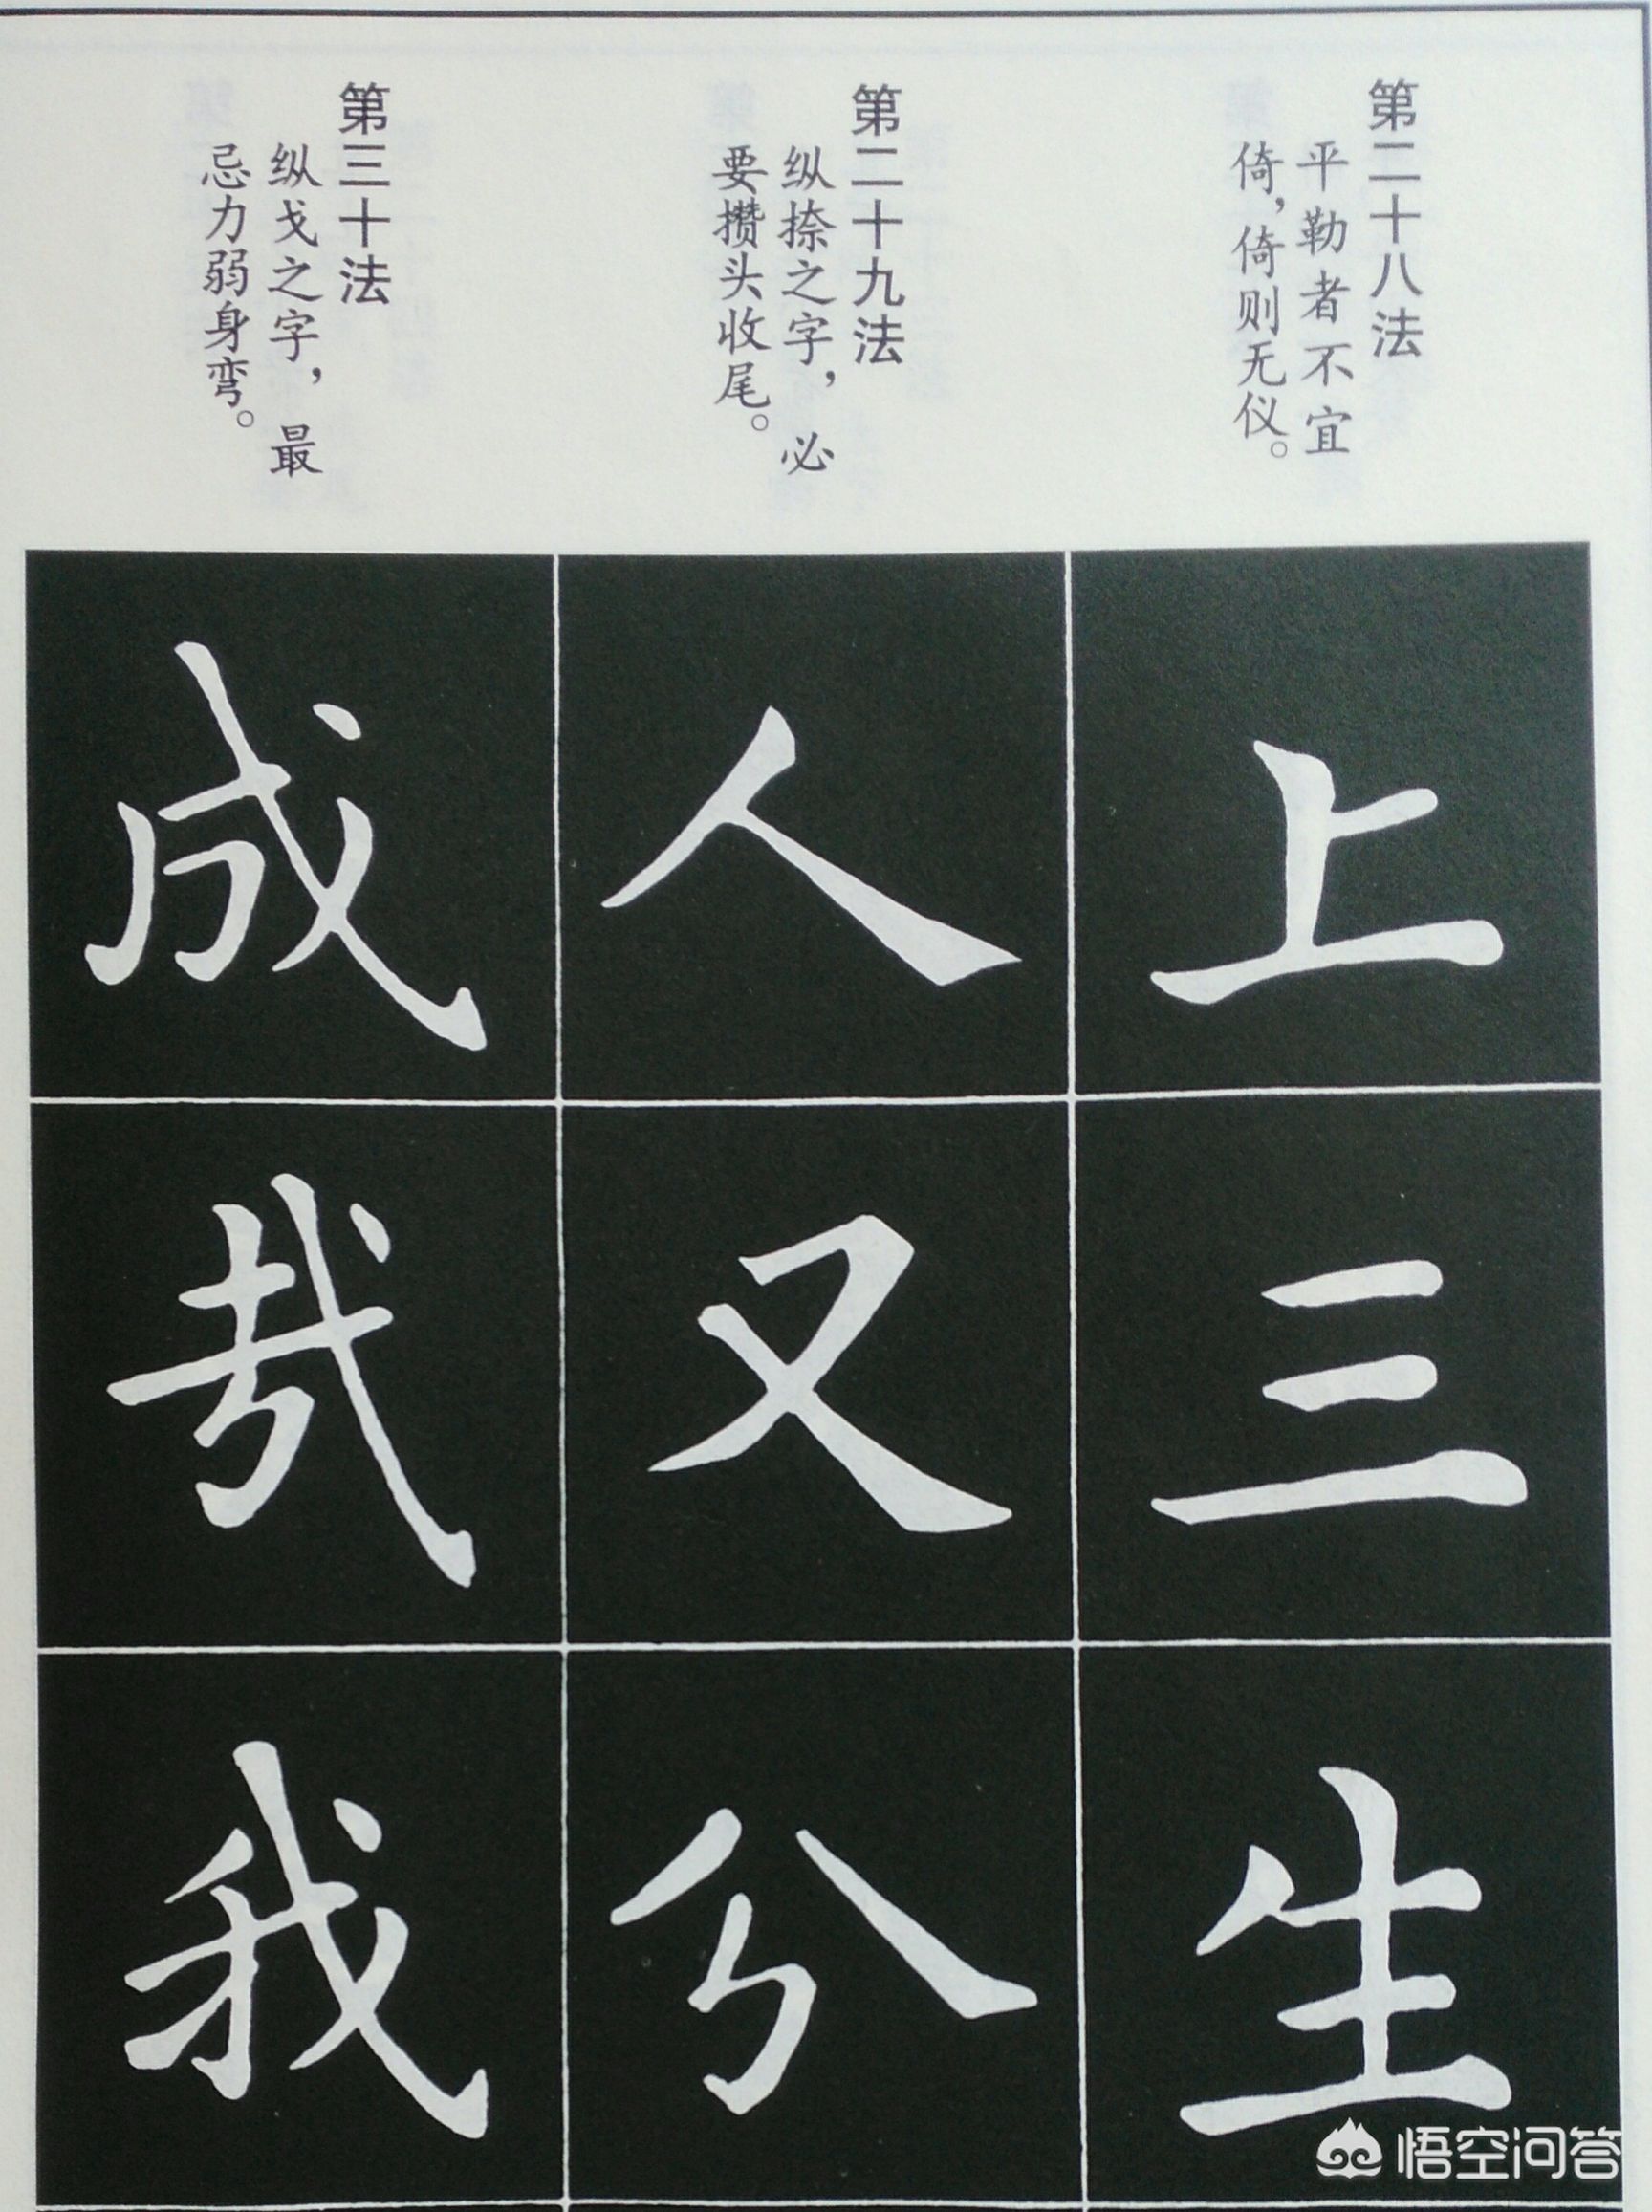 第二十八法
平勒者不宜
倚，倚则无仪。
第二十九法
纵捺之字，必
要攒头收尾。
第三十法
纵戈之字，最
忌力弱身弯。
上
三
生
人
又
分
成
哉
我
悟空问答